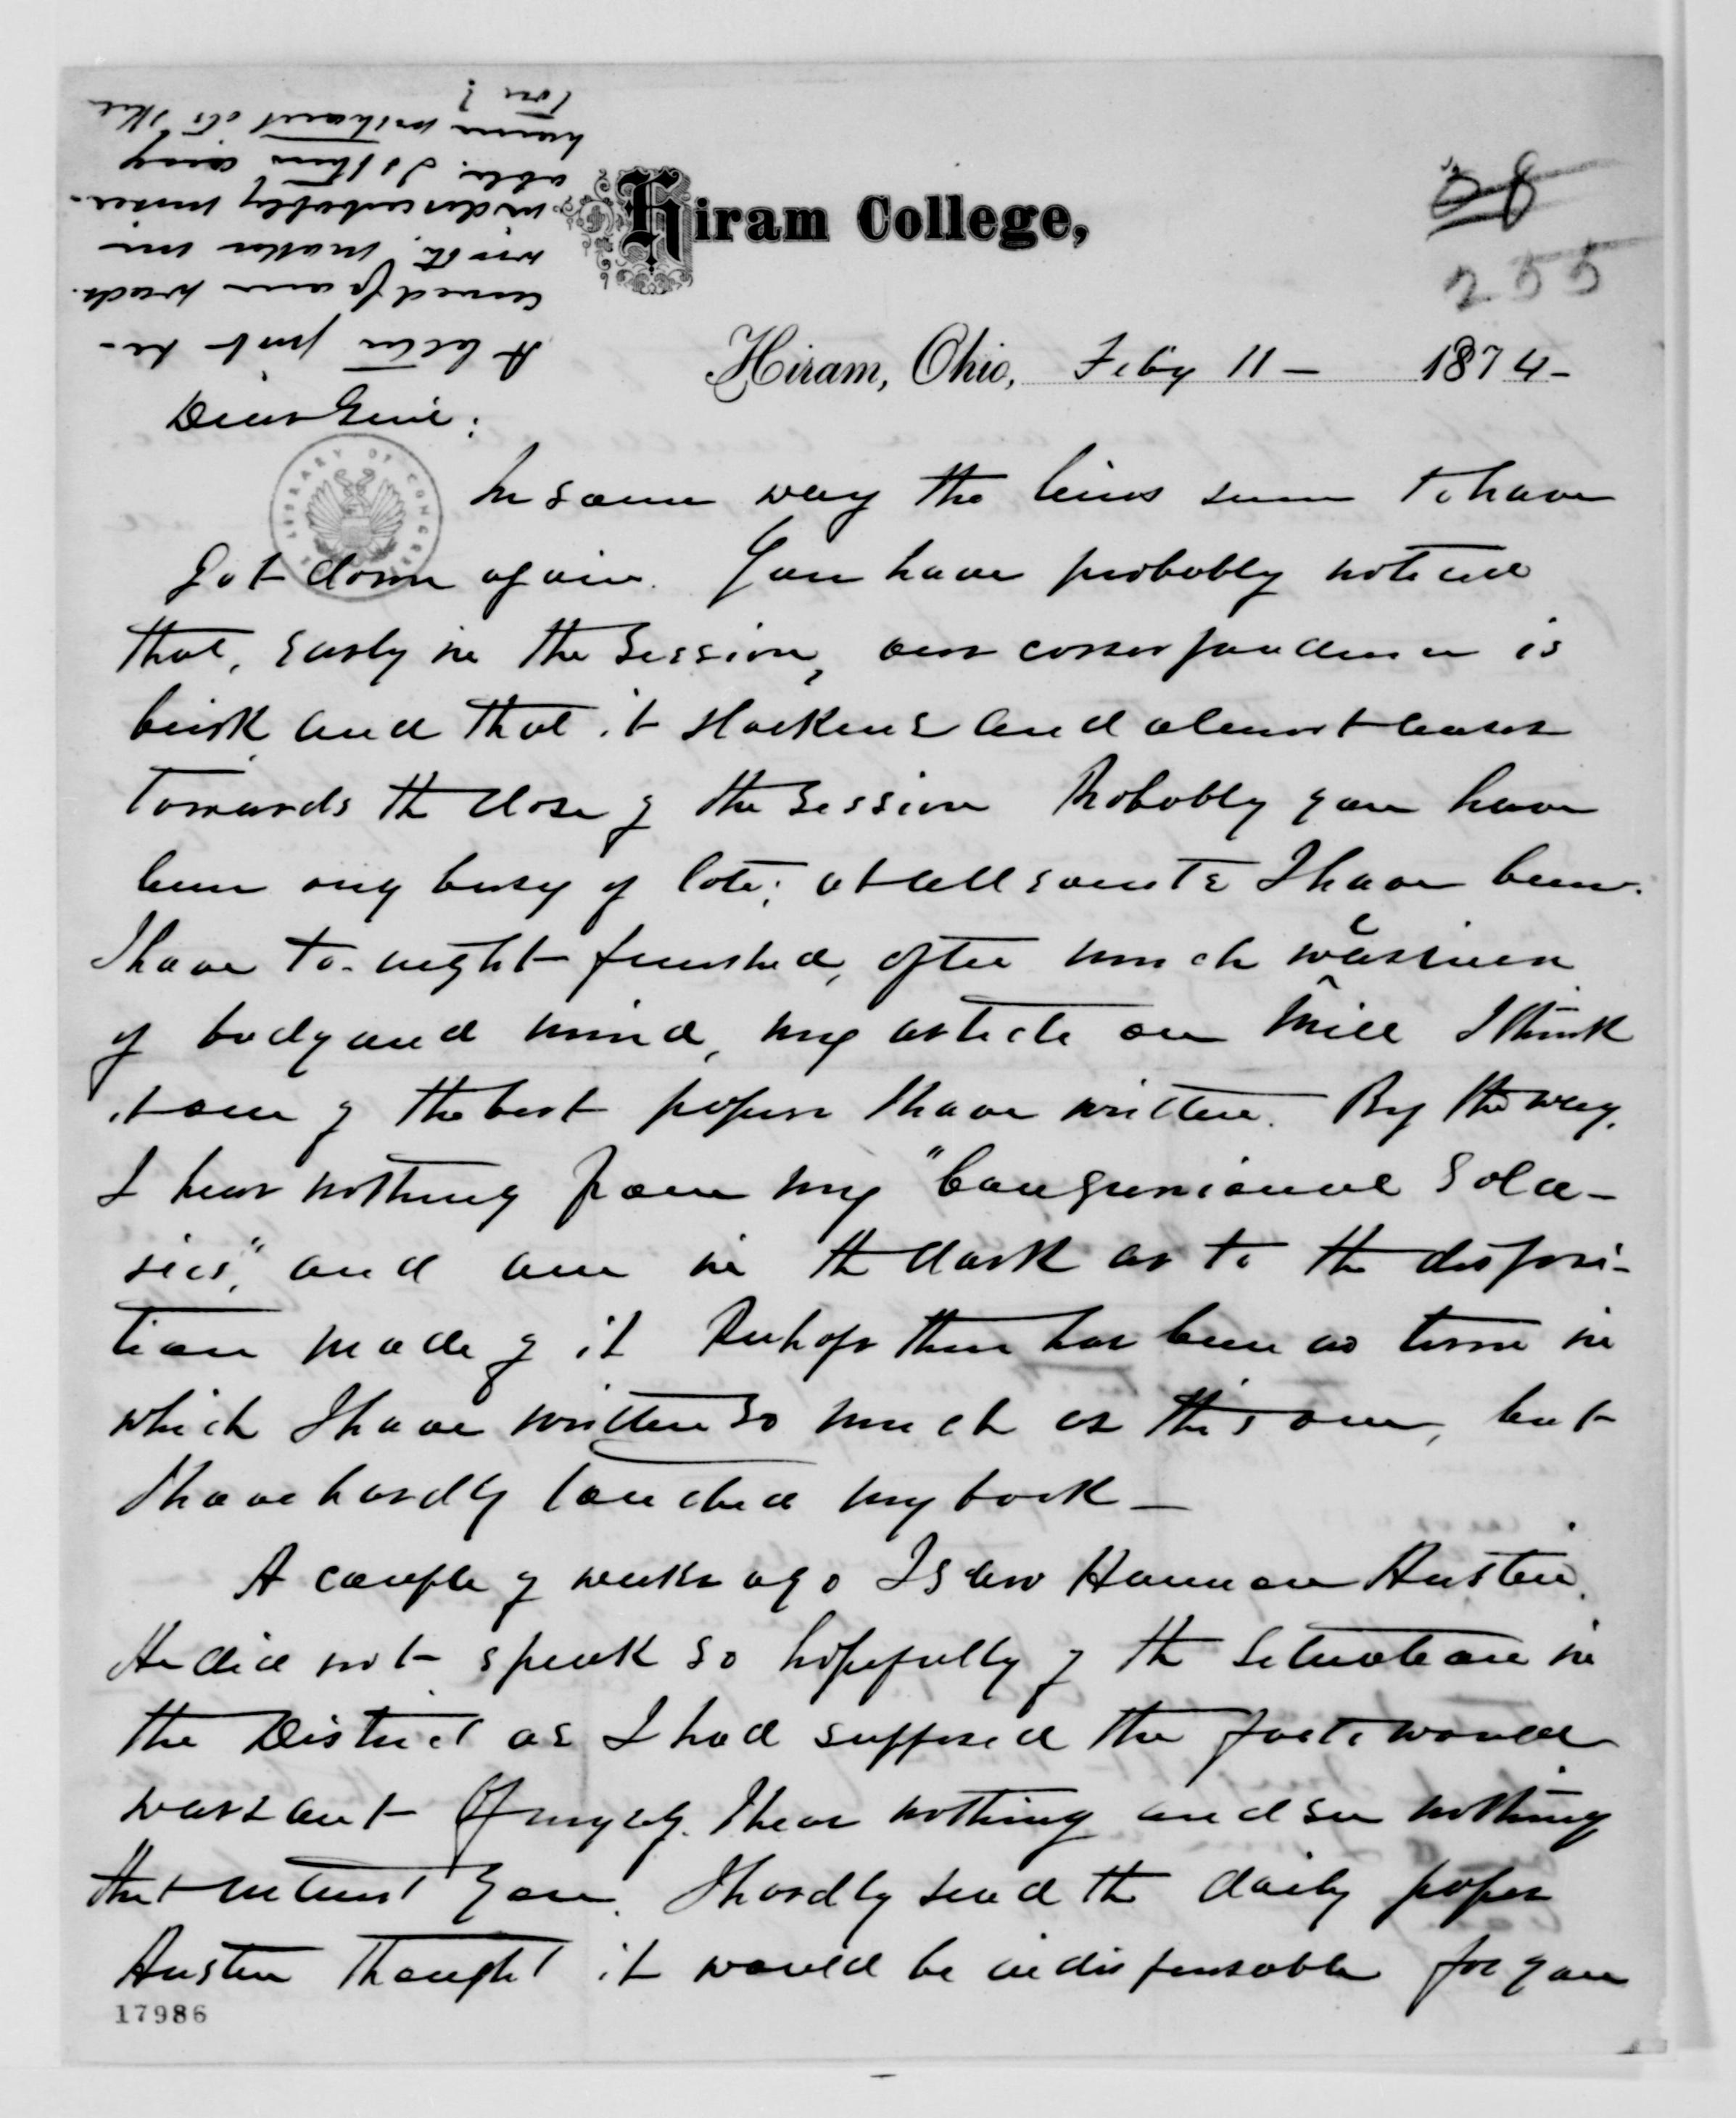 A letter just re-
ceived from Wads-
worth makes me in
indescribably miser-
able. Is there any
harm without its like
too?
38
255
Hiram College,
Hiram, Ohio, Feby 11 - 1874-
Dear Genl:
LIBRARY OF CONGRESS
In some way the lines seem to have
got down again. You have probably noticed
that, early in the Session, our correspondence is
brisk and that it slackens and almost ceases
towards the close of the Session Probably you have
been very busy of late; at all events I have been.
I have to-night finished, after much weariness
of body and mind, my article on Mill I think
it one of the best papers I have written. By the way,
I hear nothing from my "Congressional Sala-
ries", and am in the dark as to the disposi-
tion made of it Perhaps there has been no time in
which I have written so much as this one, but
I have hardly touched my book —
A couple of weeks ago I saw Harmon Austin.
He did not speak so hopefully of the situation in
the District as I had supposed the facts would
warrant Of myself I hear nothing and see nothing
that interest you. I hardly read the daily paper
Austin thought it would be indispensable for you
17986